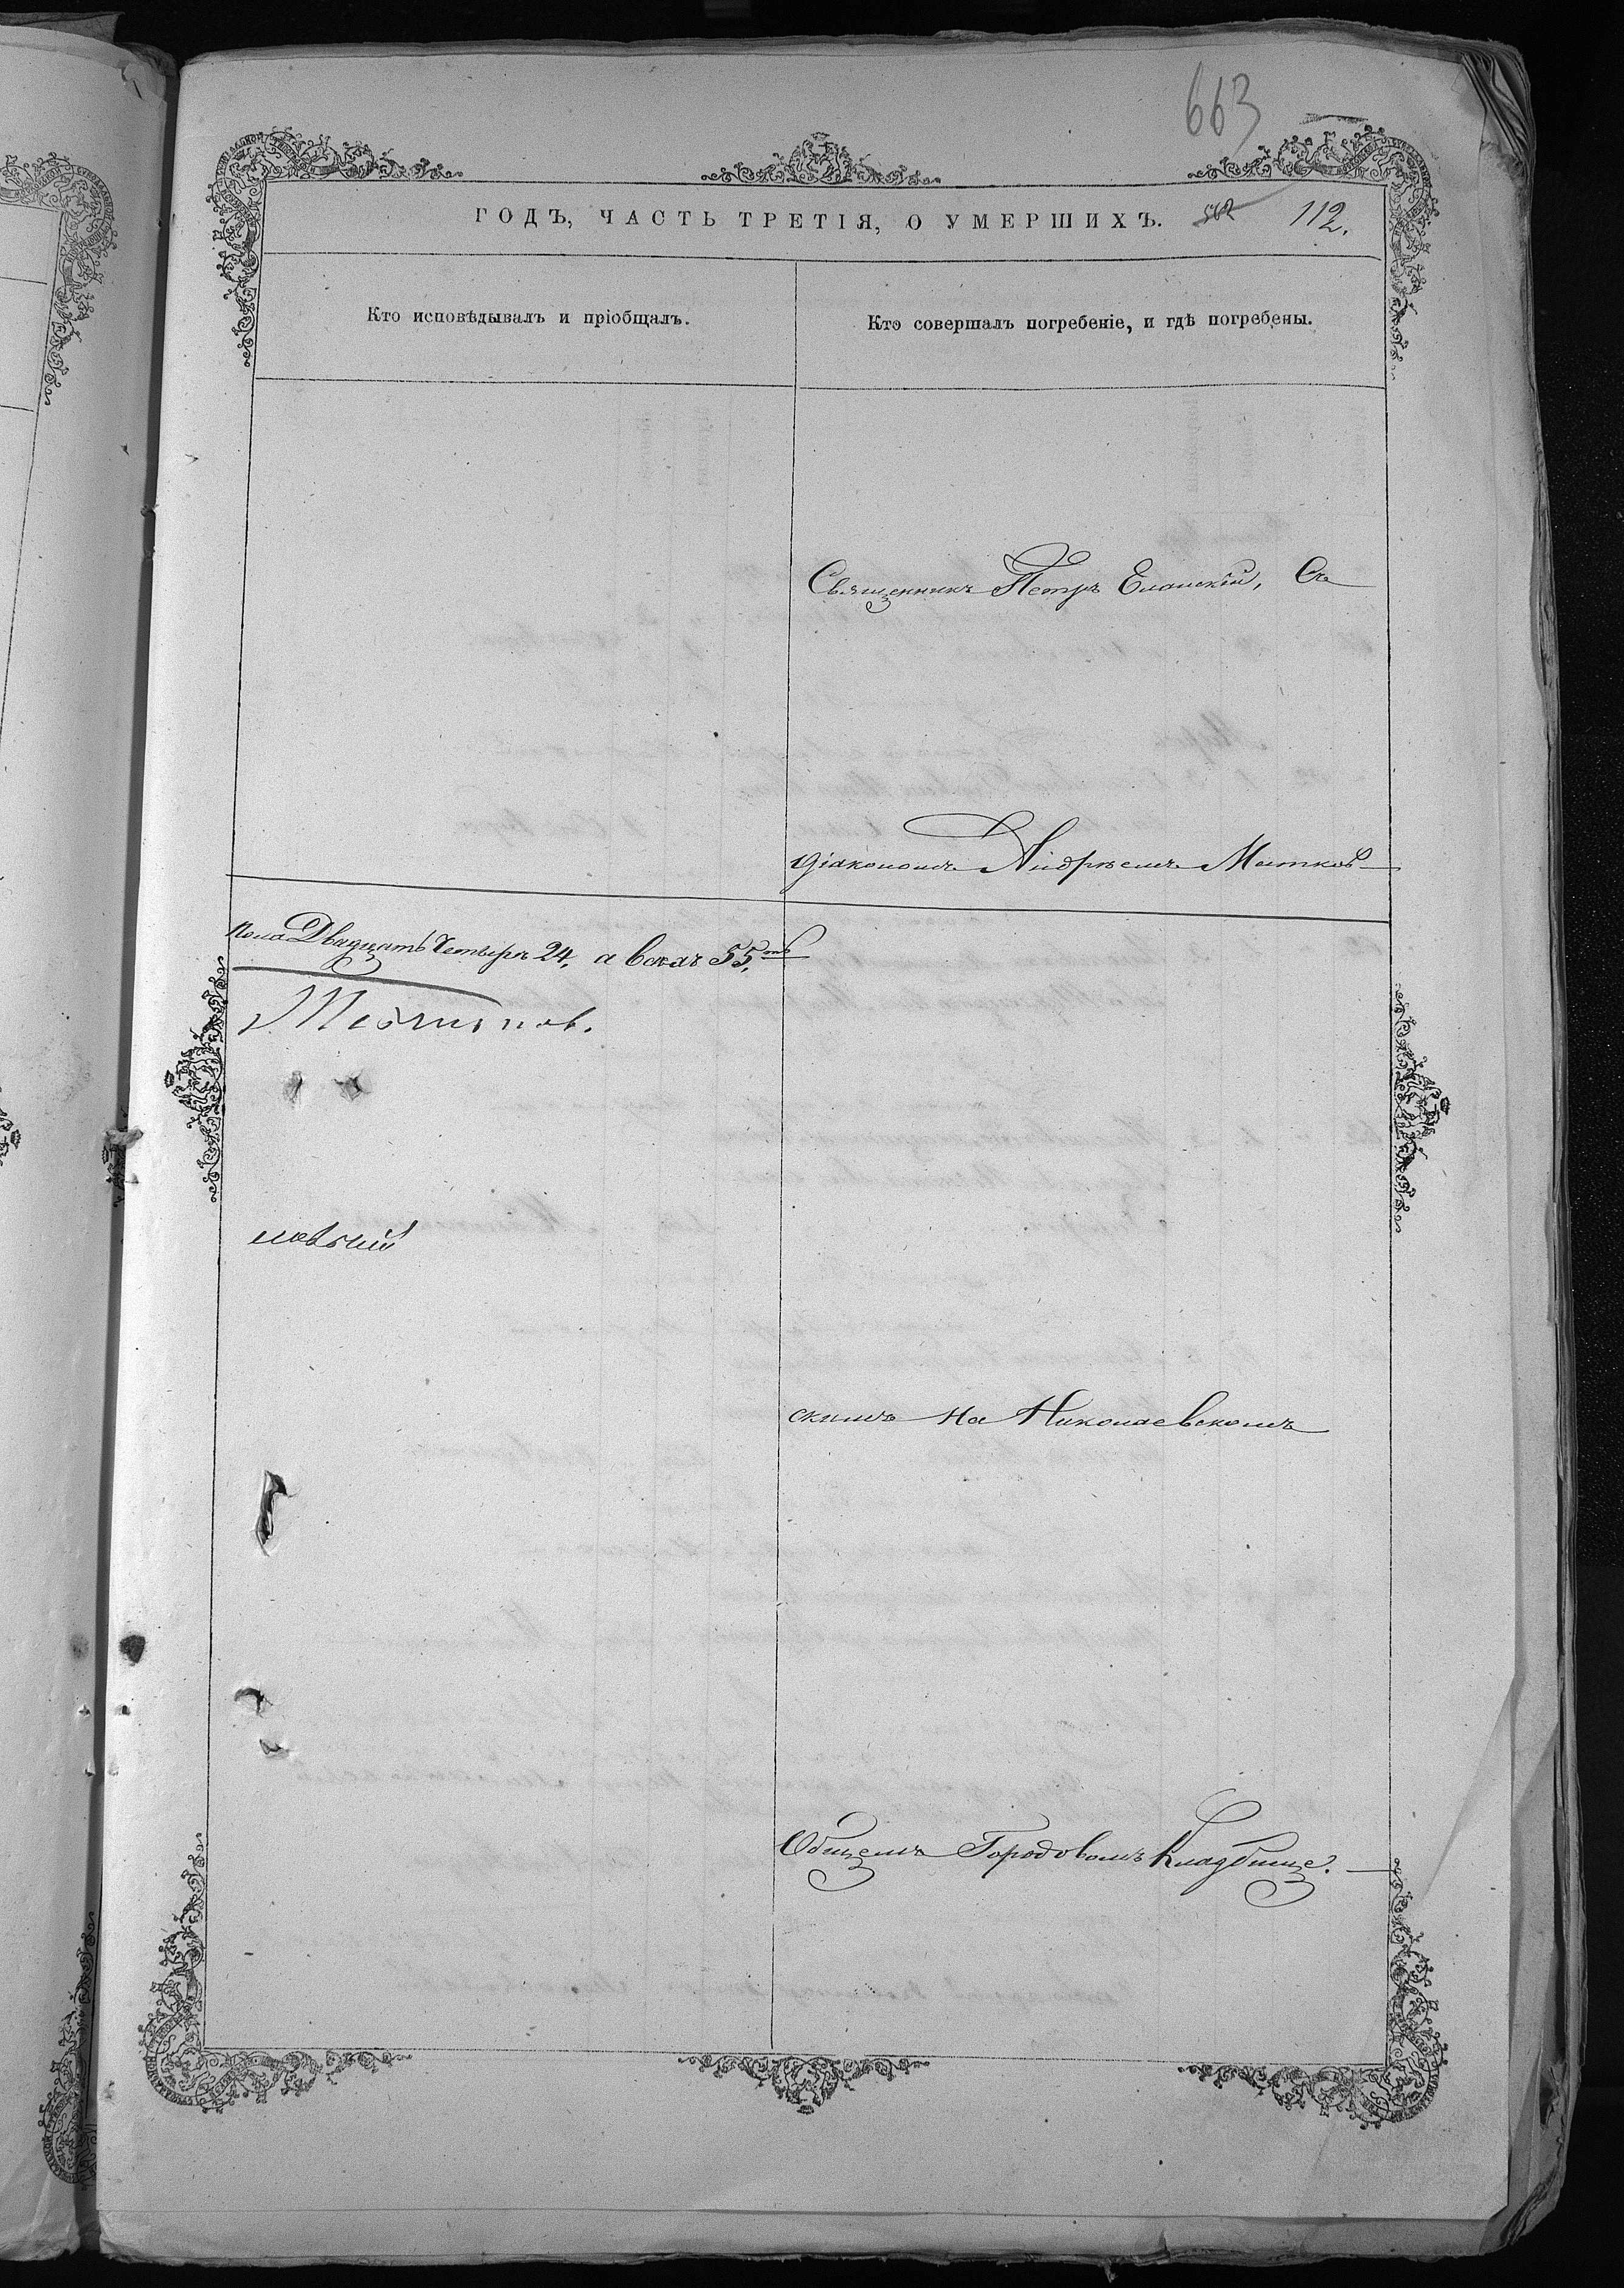 663
ГОДЪ, ЧАСТЬ ТРЕТІЯ, О УМЕРШИХЪ. 562 112.
Кто исповѣдывалъ и пріобщалъ.
Кто совершалъ погребеніе, и гдѣ погребены.
Священникъ Петръ Еланскій, Съ
Діакономъ Андреемъ Матков
пола Двадцать Четыре 24, а всехъ 55.
скимъ на Николаевскомъ
Общемъ Городовомъ Кладбище.